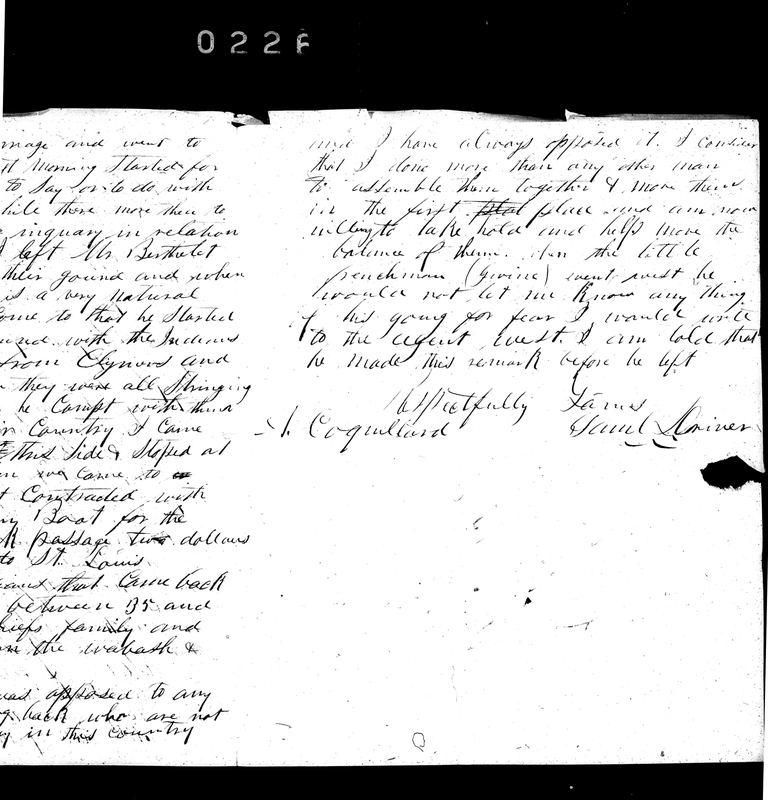 0226
mage and went to
Morning Started for
to Say or to do with
hile there more then to
inquary in relation
left Mr Berthelet
their gound and when
is a very natural
Come to that he Started
ound with the Indians
from Clymers and
they were all Stringing
he Campt with them
Country I Came
this Side & Stoped at
we Came to
Contracted with
Boat for the
passage two dollars
to St. Louis
that Came back
between 35 and
hiefs family and
on the wabash &
was opposed to any
back who are not
in this Country
and I have always opposed it. I consider
that I done more than any other man
to assemble them together & move them
in the first place and am now
willing to take hold and help move the
balance of them. when the little
frenchman (Govine) went west he
would not let me Know any thing
of his going for fear I would write
to the agent west. I am told that
he made this remark before he left
Respectfully Yours
A. Coquillard Saml Driver